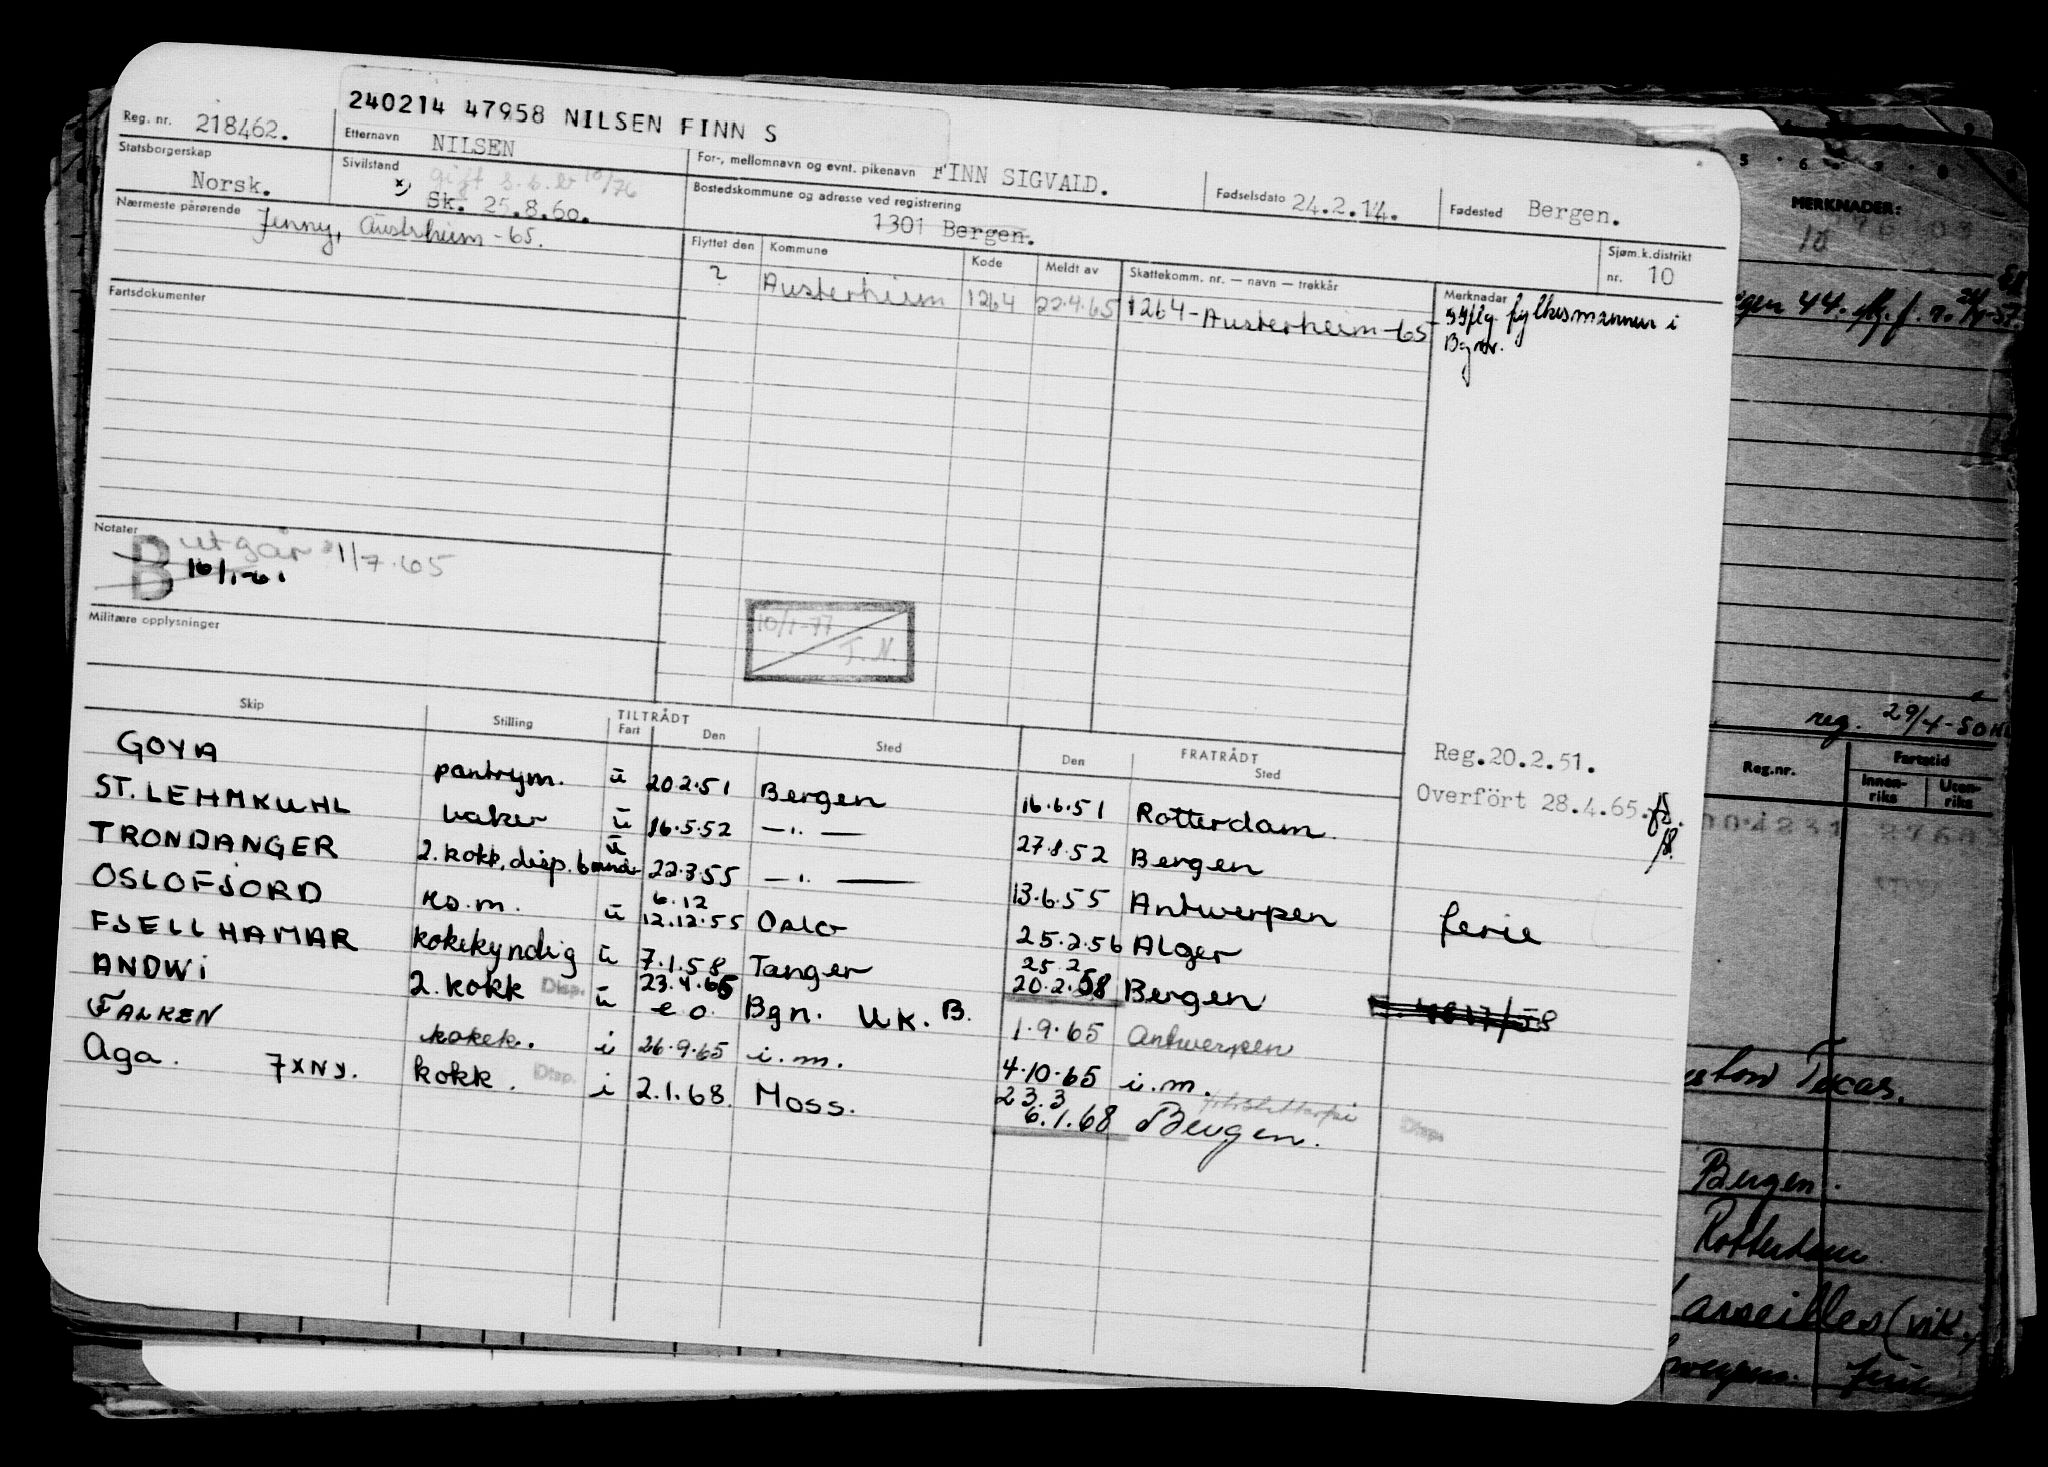 240214 47958 NILSEN FINN S
Reg. nr. 218462.
Etternavn NILSEN
For-, mellomnavn og evnt. pikenavn FINN SIGVALD.
Fødselsdato 24.2.14.
Fødested Bergen.
Statsborgerskap Norsk.
Sivilstand gift s.b.b 10/76
x) Sk. 25.8.60.
Bostedskommune og adresse ved registrering
1301 Bergen.
Sjøm.k.distrikt
nr. 10
Nærmeste pårørende Jenny, Austrheim - 65.
Flyttet den Kommune Kode Meldt av Skattekomm. nr. — navn — trekkår Merknader
? Austerheim 1264 22.4.65 1264 - Austerheim - 65
iflg fylkesmannen i
Bgn
Fartsdokumenter
Notater
B utgår 1/7.65
B 16/1-61
Militære opplysninger
10/1-77
J.N.
Skip Stilling TILTRÅDT Fart Den Sted FRATRÅDT Den Sted
Reg.20.2.51.
Overfört 28.4.65.
GOYA pantrym. u 20.2.51 Bergen 16.6.51 Rotterdam
ST. LEHMKUHL baker u 16.5.52 —"— 27.8.52 Bergen
TRONDANGER 2. kokk, disp. u 22.3.55 —"— 13.6.55 Antwerpen ferie
OSLOFJORD ko.m. u 6.12 12.12.55 Oslo 25.2.56 Alger
FJELLHAMAR kokekyndig u 7.1.58 Tanger 25.2 20.2.58 Bergen
ANDWI 2. kokk Disp. u 23.4.65 e.o. Bgn. UK. B. 1.9.65 Antwerpen
FALKEN kokek. i 26.9.65 i.m. 4.10.65 i.m.
Aga. 7XNY. kokk. Disp. i 2.1.68. Moss. 23.3 6.1.68 Bergen. Disp.
MERKNADER:
10
44.
reg. 29/4-50
Reg.nr. Fartstid
Innen-
riks
Uten-
riks
Texas.
Bergen.
Rotterdam